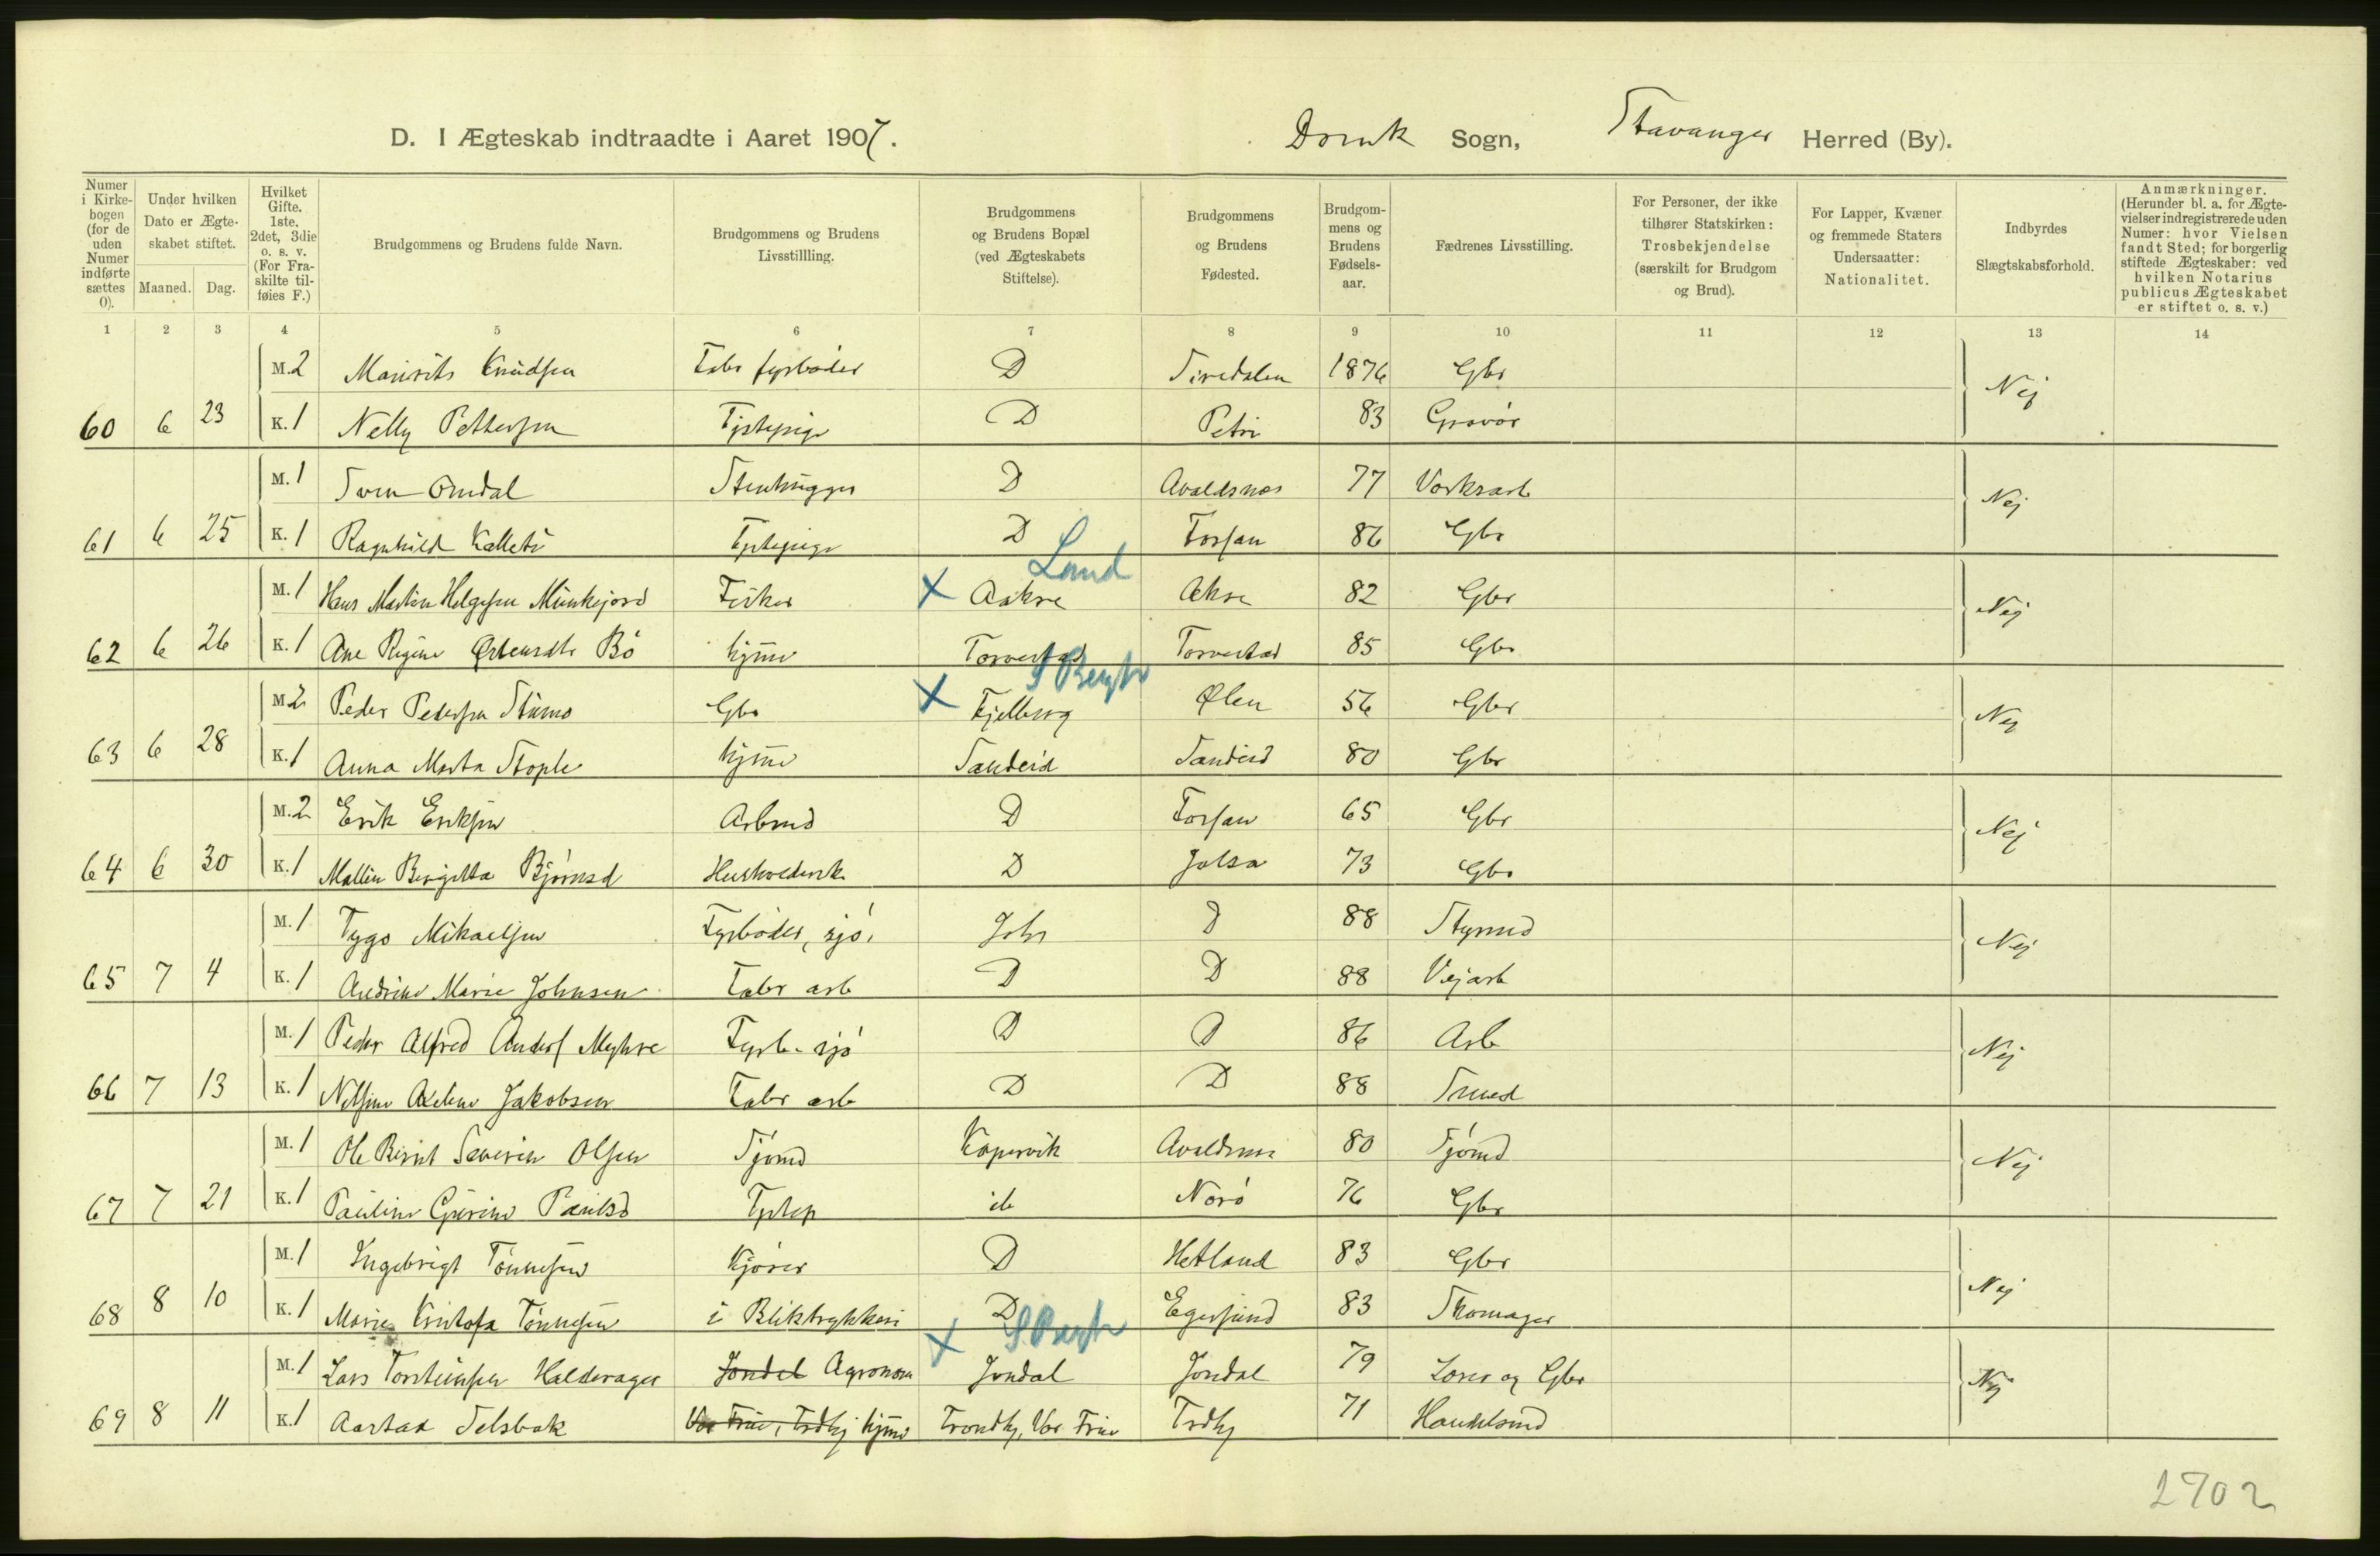 D. I Ægteskab indtraadte i Aaret 1907. Domk Sogn, Stavanger Herred (By).
Numer i Kirkebogen (for de uden Numer indførte sættes 0).
Under hvilken Dato er Ægteskabet stiftet.
Maaned. Dag.
Hvilket Gifte. 1ste, 2det, 3die o. s. v. (For Fraskilte tilføies F.)
Brudgommens og Brudens fulde Navn.
Brudgommens og Brudens Livsstillling.
Brudgommens og Brudens Bopæl (ved Ægteskabets Stiftelse).
Brudgommens og Brudens Fødested.
Brudgommens og Brudens Fødselsaar.
Fædrenes Livsstilling.
For Personer, der ikke tilhører Statskirken: Trosbekjendelse (særskilt for Brudgom og Brud).
For Lapper, Kvæner og fremmede Staters Undersaatter: Nationalitet.
Indbyrdes Slægtskabsforhold.
Anmærkninger. (Herunder bl. a. for Ægtevielser indregistrerede uden Numer: hvor Vielsen fandt Sted; for borgerlig stiftede Ægteskaber: ved hvilken Notarius publicus Ægteskabet er stiftet o. s. v.)
1 2 3 4 5 6 7 8 9 10 11 12 13 14
M. 2 Mauritz Knudsen Fabr fyrbøder D Siredalen 1876 Gbr Nej
60 6 23 K. 1 Nelly Pettersen Tjstepige D Petri 83 Gravör
M. 1 Sven Omdal Stenhugger D Avaldsnes 77 Verksarb Nej
61 6 25 K. 1 Ragnhild Kalleti Tjstepige D Forsan 86 Gbr
Land
M. 1 Hans Martin Helgesen Munkejord Fisker X Aakre Akre 82 Gbr Nej
62 6 26 K. 1 Ane Regine Østensdtr Bö hjme Torvestad Torvestad 85 Gbr
S Bergh
M 2 Peder Pedersen Stumo Gbr X Fjelberg Ølen 56 Gbr Nej
63 6 28 K. 1 Anna Marta Stople hjme Sandeid Sandeid 80 Gbr
M. 2 Erik Eriksen Arbmd D Forsan 65 Gbr Nej
64 6 30 K. 1 Mallin Bergitta Björnsd Husholdersk D Jelsa 73 Gbr
M. 1 Tygo Mikaelsen Fyrbøder, sjö. Joh D 88 Styrmd Nej
65 7 4 K. 1 Andrine Marie Johnsen Fabr arb D D 88 Vejarb
M. 1 Peder Alfred Anders Myhre Fyrb. sjö D D 86 Arb Nej
66 7 13 K. 1 Nilsine Axeline Jakobsen Fabr arb D D 88 Smed
M. 1 Ole Bernt Severin Olsen Sjömd Kopervik Avaldsnes 80 Sjömd Nej
67 7 21 K. 1 Pauline Gurine Paulsd Tjstep do Nerö 76 Gbr
M. 1 Ingebrigt Tönnesen Kjörer D Hetland 83 Gbr Nej
68 8 10 K. 1 Marie Kristofa Tönnesen i Bliktrykkeri D Egersund 83 Skomager
S Bergh
M. 1 Lars Torsteinsen Haldorager Jondal Agronom X Jondal Jondal 79 Lærer og Gbr Nej
69 8 11 K. 1 Aastad Selsbak Vor Frue, Trdhj hjme Trondhj, Vor Frue Trdhj 71 Handelsmd
2702